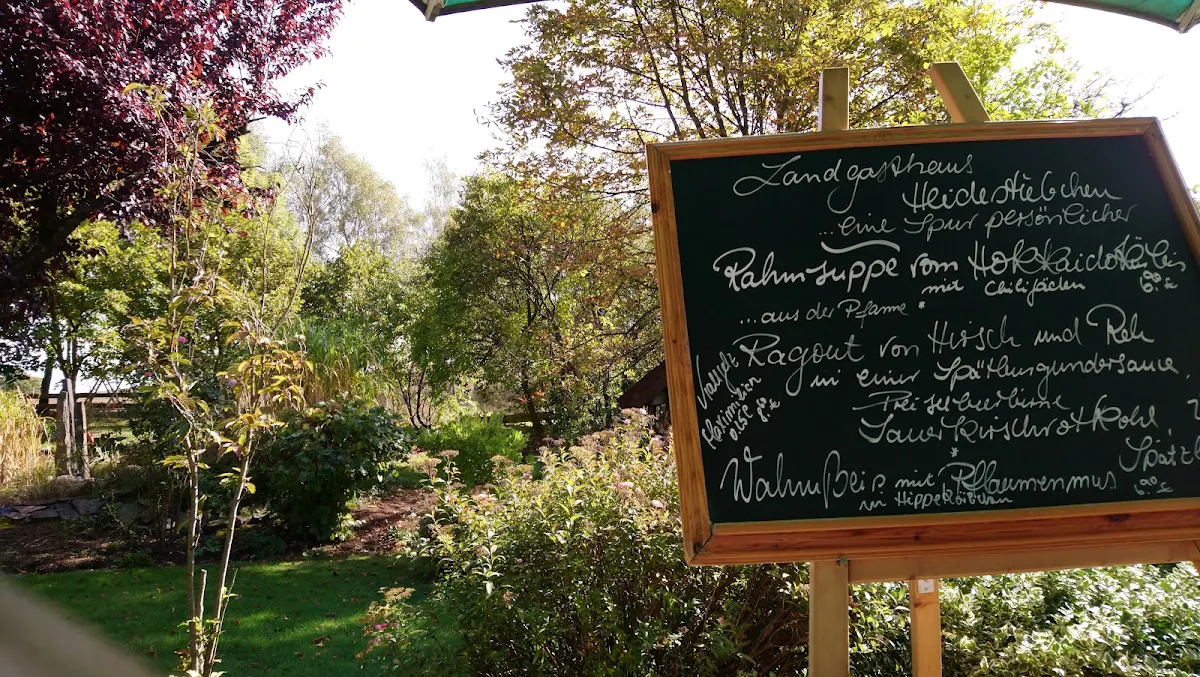 Landgasthaus
Heidestiebchen
...eine Spur persönlicher
Rahmsuppe vom Hokkaidokürbis
mit Chilifäden 6.90 €
...aus der Pfanne *
Ragout von Hirsch und Reh
in einer Spätburgundersauce,
Preiselbeerbirne
Sauerkirschrotkohl,
Spätzle
Walnußeis mit Pflaumenmus
im Hippekörbchen 6.90 €